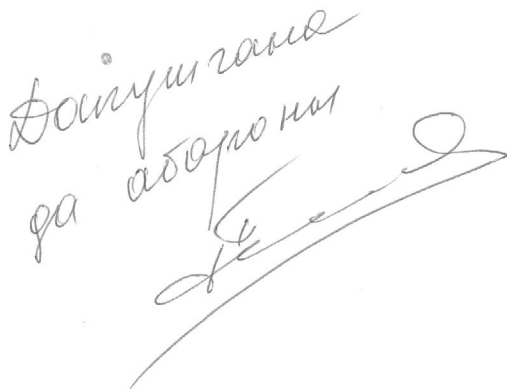 Дапушчана
да абароны